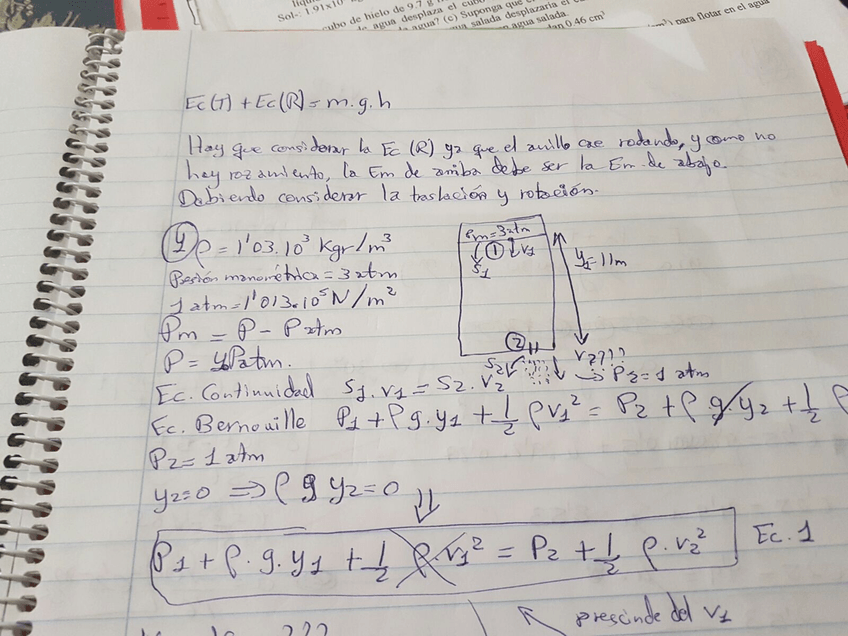 Sol-: 1 91x10
cubo de hielo de 9.7 g
agua desplaza el cubo
agua? (c) Suponga que
salada desplazaría el
en agua salada.
dan 0 46 cm³
para flotar en el agua
Ec(T) + Ec(R) = m.g.h
Hay que considerar la Ec (R) ya que el anillo cae rodando, y como no
hay rozamiento, la Em de arriba debe ser la Em de abajo.
Debiendo considerar la traslación y rotación.
4 ρ = 1'03.10³ Kgr/m³
Presión manométrica = 3 atm
1 atm = 1'013.10⁵ N/m²
Pm = P - Patm
P = 4Patm.
Pm = 3 atm
1 ↓ V1
S1
y1 = 11m
2
S2
V2???
→ P2 = 1 atm
Ec. Continuidad S1.V1 = S2.V2
Ec. Bernouille P1 + ρ g. y1 + 1/2 ρ v1² = P2 + ρ g. y2 + 1/2 ρ
P2 = 1 atm
y2 = 0 ⇒ ρ g y2 = 0
P1 + ρ. g. y1 + 1/2 ρ.v1² = P2 + 1/2 ρ. v2² Ec. 1
prescinde del V1
???